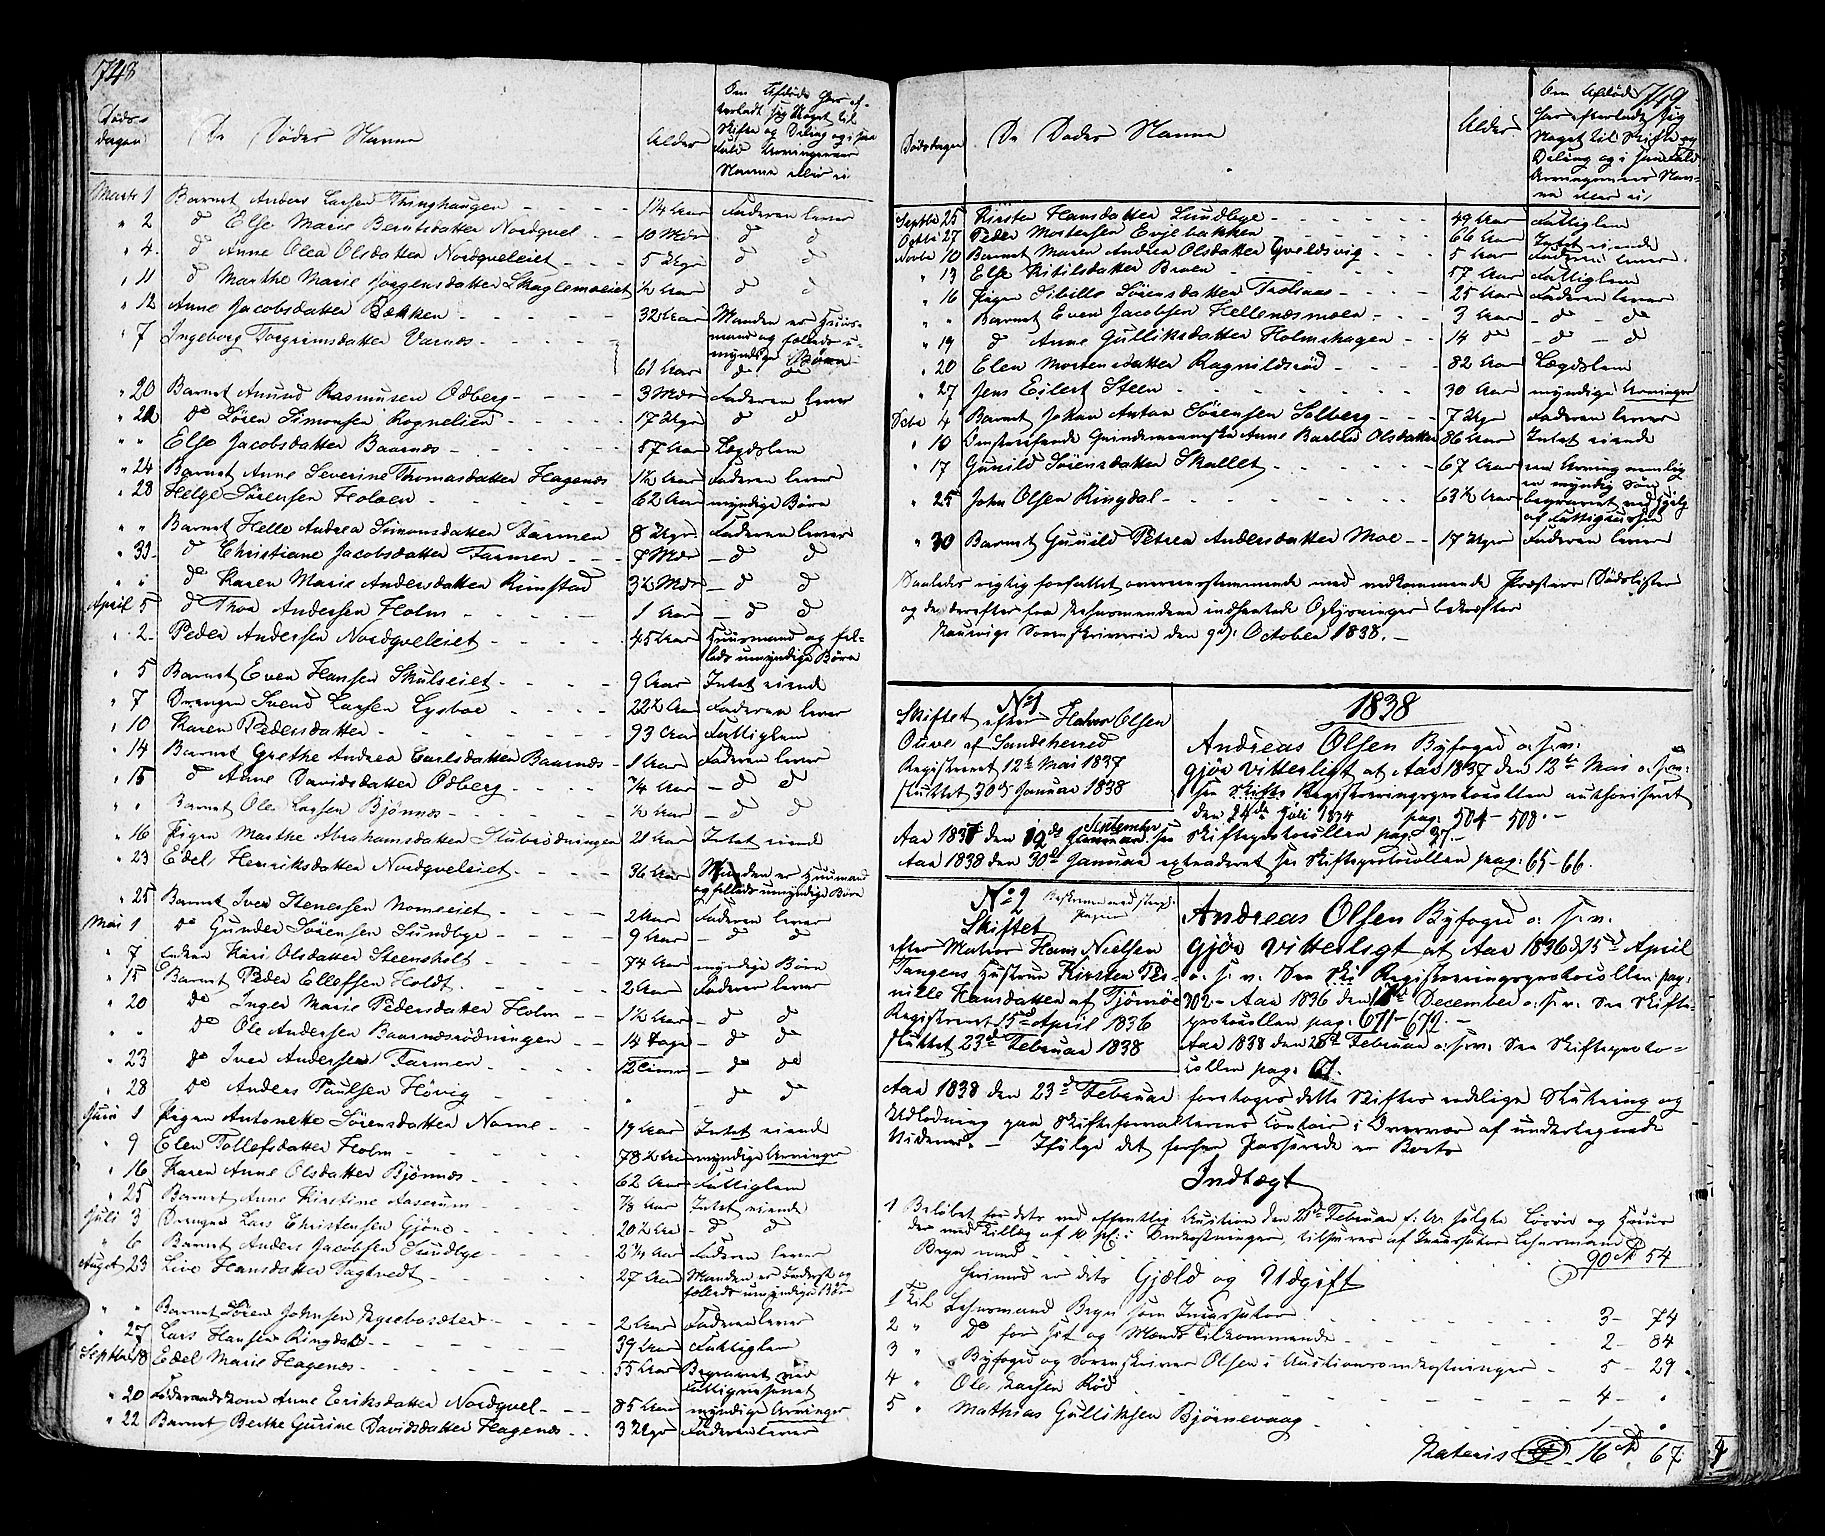 748
Døds-
dagen
De Dødes Navne
Alder
Om Afdøde har ef-
terladt sig Noget til
Skifte og Deling og i saa
Fald Arvingernes
Navne eller ei
Marts 1 Barnet Anders Larsen Thinghaugen 1¼ Aar Faderen lever
" 2 d Else Marie Berntsdatter Nordqvel 10 Mdr d d
" 4 d Anne Olea Olsdatter Nordqveleiet 5 Uger d d
" 11 d Marthe Marie Jørgensdatter Skaglemoeiet ½ Aar d d
" 12 Anne Jacobsdatter Bækken 32 Aar Manden er Huus-
mand og følleds u-
myndige Børn
" 7 Ingeborg Torgrimsdatter Varnes 61 Aar d d
" 20 Barnet Amund Rasmusen Odberg 3 Mdr Faderen lever
" 22 do Søren Simonsen Rognelien 17 Uger d d
" " Else Jacobsdatter Baarnæs 57 Aar Lægdslem
" 24 Barnet Anne Severine Thomasdatter Hagenæs 1½ Aar Faderen lever
" 28 Helge Sørensen Holaen 62 Aar myndige Børn
" " Barnet Helle Andrea Simonsdatter Farmen 8 Uger Faderen lever
" 31 d Christiane Jacobsdatter Farmen 7 Mdr d d
" " d Karen Marie Andersdatter Rimstad 3½ Mdr d d
April 5 d Thor Andersen Holm 1 Aar d d
" 2 Peder Andersen Nordqveleiet 45 Aar Huusmand og føl-
leds umyndige Børn
" 5 Barnet Even Hansen Skulseiet 9 Aar Intet eiende
" 7 Drengen Svend Larsen Lysboe 22½ Aar Faderen lever
" 10 Karen Pedersdatter 93 Aar Fattiglem
" 14 Barnet Grethe Andrea Carlsdatter Baarnæs 1 Aar Faderen lever
" 15 d Anne Davidsdatter Odberg ¾ Aar d d
" " Barnet Ole Larsen Bjønnæs ½ Aar d d
" 16 Pigen Marthe Abrahamsdatter Stubrødningen 21 Aar Intet eiende
" 23 Edel Henriksdatter Nordqveleiet 36 Aar Manden er Huusmand
og følleds umyndige Børn
" 25 Barnet Iver Stenersen Nomeeiet 2 Aar Faderen lever
Mai 1 do Gunder Sørensen Sundbye 9 Aar d d
" 7 Enken Kari Olsdatter Steensholt 74 Aar myndige Børn
" 15 Barnet Peder Ellefsen Holdt 2 Aar Faderen lever
" 20 do Inger Marie Pedersdatter Holm 1½ Aar d d
" " do Ole Andersen Baarnæsrødningen 14 Dage d do
" 23 do Iver Andersen Farmen 12 Timer do do
" 28 do Anders Paulsen Høvig " do d
Juni 1 Pigen Antonette Sørensdatter Nome 19 Aar Intet eiende
" 9 Elen Tollefsdatter Holm 78½ Aar myndige Arvinger
" 16 Karen Anne Olsdatter Bjønnæs 62 Aar Fattiglem
" 25 Barnet Anne Kirstine Aaserum ⅞ Aar Intet eiende
Juli 3 Drengen Lars Christensen Gjønes 20½ Aar d d
" 6 Barnet Anders Jacobsen Sundbye 2¼ Aar Faderen lever
August 23 Live Hansdatter Tagtvedt 27 Aar Manden er Inderst og
følleds umyndige Børn
" " Barnet Søren Johnsen 2 Aar Faderen lever
" 27 Lars Hansen Ringdal 39 Aar Fattiglem
Septbr 18 Edel Marie Hagenæs 55 Aar Begravet ved
Fattigvæsenet
" 20 Føderaadskone Anne Eriksdatter Nordqvel 85 Aar myndige Arvinger
" 22 Barnet Berthe Gurine Davidsdatter Hagenæs 3 Uger Faderen lever
749
Dødsdagen
De Dødes Navne
Alder
Om Afdøde
har efterladt sig
Noget til Skifte og
Deling og i saa Fald
Arvingernes Nav-
ne eller ei
Septbr 25 Kirsten Hansdatter Sundbye 49 Aar Fattiglem
Octbr 27 Peder Mortensen Evjebakken 66 Aar Intet eiende
Novbr 10 Barnet Maren Andrea Olsdatter Qveldsvig 5 Aar Faderen lever
" 13 Else Kitilsdatter Broen 57 Aar Fattiglem
" 16 Pigen Sibille Sørensdatter Trolsaas 25 Aar Faderen lever
" " Barnet Even Jacobsen Hellenæsmoen 3 Aar do do
" 19 d Anne Gulliksdatter Holmshagen 14 d do d
" 20 Elen Mortensdatter Ragnildsrød 82 Aar Lægdslem
" 27 Jens Eilert Steen 30 Aar myndige Arvinger
Decbr 4 Barnet Johan Anton Sørensen Solberg 7 Uger Faderen lever
" 10 Omstreifende Qvindemenneske Anne Barbro Olsdatter 86 Aar Intet eiende
" 17 Gunild Sørensdatter Skallet 67 Aar en Arving nemlig
en myndig Søn
" 25 John Olsen Ringdal 63½ Aar begravet ved Hjelp
af Fattigcassen
" 30 Barnet Gunild Petrea Andersdatter Moe 17 Uger Faderen lever
Saaledes rigtig forfattet overeensstemmende med vedkommende Præsters Dødslister
og de derefter fra Lehnsmændene indhentede Oplysninger bekræfter
Laurvigs Sorenskriverie den 9de October 1838.
No 1
Skiftet efter Hans Olsen
Ouve af Sandeherred
Registreret 12te Mai 1837
sluttet 30te Januar 1838
1838
Andreas Olsen Byfoged o: s: v:
gjør vitterligt at Aar 1837 den 12te Mai o: s: v:
see Skifts Registreringsprotocollen authoriseret
den 24de Juli 1834 pag: 504-508.
Aar 1837 den 12de September see Skifteprotocollen pag: 37.
Aar 1838 den 30te Januar extraderet see Skifteprotocollen pag: 65-66.
No 2
Skiftet
efter Matros Hans Nielsen
Tangens Hustrue Kirsten Per-
nille Hansdatter af Tjømøe
Registreret 15de April 1836
sluttet 23de Februar 1838
Andreas Olsen Byfoged o: s: v:
gjør vitterligt at Aar 1836 d 15de April
o: s: v: See Skifts Registreringsprotocollen pag:
302- Aar 1836 den December o: s: v: See Skifte-
protocollen pag: 671-672.
Aar 1838 den Februar o: s: v: See Skifteproto-
collen pag: 67.
Aar 1838 den 23de Februar foretoges dette Skiftes endelige Slutning og
Udlodning paa Skifteforvalterens Contoir i Overvær af undertegnede
Vidner. Ifølge det forhen Passerede er Boets
Indtægt
1 Beløbet for dets ved offentlig Auction den Februar f: A: solgte Løsøre og Huus
der med Tillæg af 10 pC: i Omkostninger, tilsvares af Incassator Lehnsmand
Bryn med 90 54
herimod er dets Gjæld og Udgift
1 Til Lehnsmand Bryn som Incassator 3- 74
2 " do for Hst og Mænds Tilkommende 2- 84
3 " Byfoged og Sorenskriver Olsen i Auctionsomkostninger 5- 29
4 " Ole Larsen Rød 4- "
5 " Mathias Gulliksen Bjørnevaag 1- "
Lateris 16 67